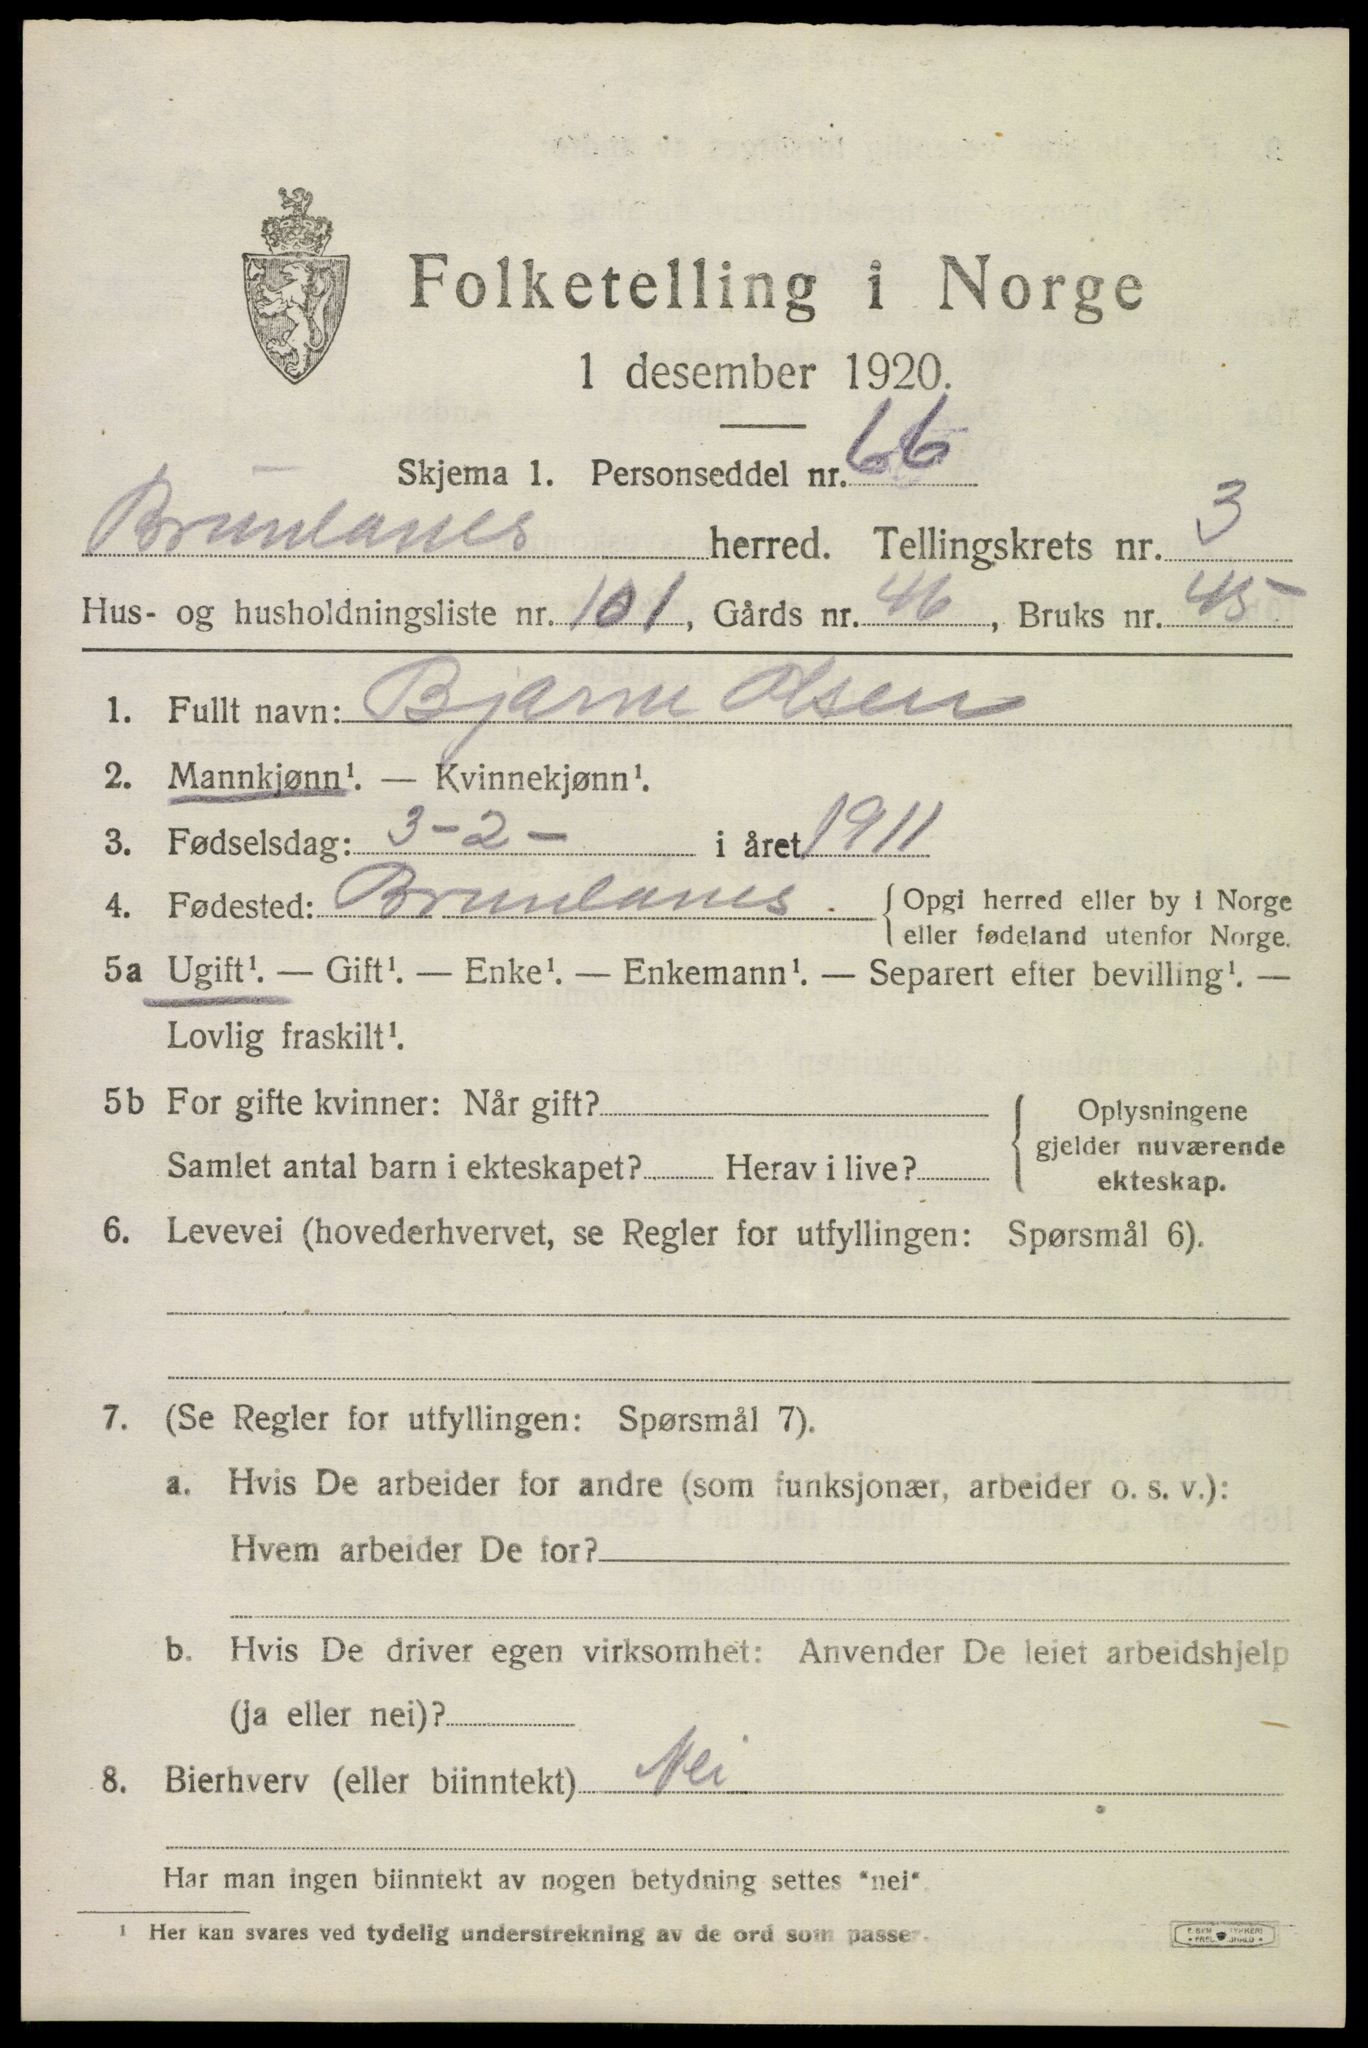 Folketelling i Norge
1 desember 1920.
Skjema 1. Personseddel nr. 66
Brunlanes herred. Tellingskrets nr. 3
Hus- og husholdningsliste nr. 101, Gårds nr. 46, Bruks nr. 45
1. Fullt navn: Bjarne Olsen
2. Mannkjønn¹. — Kvinnekjønn¹.
3. Fødselsdag: 3-2- i året 1911
4. Fødested: Brunlanes { Opgi herred eller by i Norge
eller fødeland utenfor Norge.
5a Ugift¹. — Gift¹. — Enke¹. — Enkemann¹. — Separert efter bevilling¹. —
Lovlig fraskilt¹.
5b For gifte kvinner: Når gift? { Oplysningene
gjelder nuværende
Samlet antal barn i ekteskapet? Herav i live? ekteskap.
6. Levevei (hovederhvervet, se Regler for utfyllingen: Spørsmål 6).
7. (Se Regler for utfyllingen: Spørsmål 7).
a. Hvis De arbeider for andre (som funksjonær, arbeider o. s. v.):
Hvem arbeider De for?
b. Hvis De driver egen virksomhet: Anvender De leiet arbeidshjelp
(ja eller nei)?
8. Bierhverv (eller biinntekt) Nei
Har man ingen biinntekt av nogen betydning settes "nei".
¹ Her kan svares ved tydelig understrekning av de ord som passer.